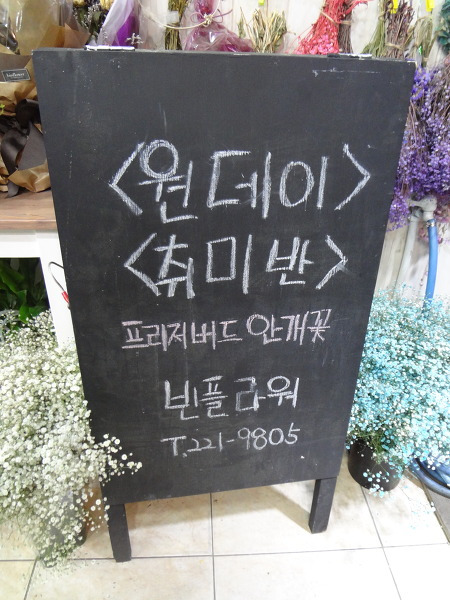 <원데이>
<취미반>
프리저버드 안개꽃
빈플라워
T.221-9805